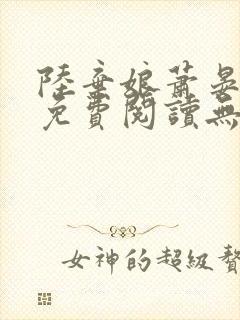 陸棄娘蕭晏
免費閱讀無
女神的超級贅